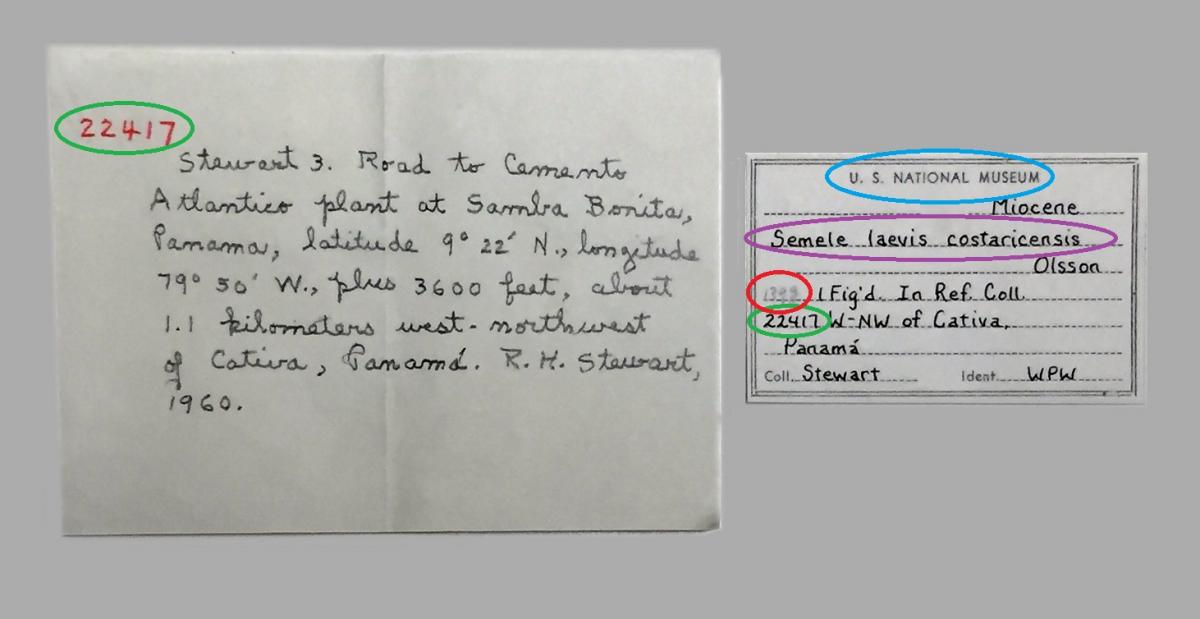 22417
Stewart 3. Road to Cemento
Atlantico plant at Samba Bonita,
Panama, latitude 9° 22' N., longitude
79° 50' W., plus 3600 feet, about
1.1 kilometers west-northwest
of Cativa, Panamá. R. H. Stewart,
1960.
U. S. NATIONAL MUSEUM
Miocene
Semele laevis costaricensis
Olsson
1 Fig'd. In Ref. Coll.
22417 W-NW of Cativa,
Panamá
Coll. Stewart Ident. WPW